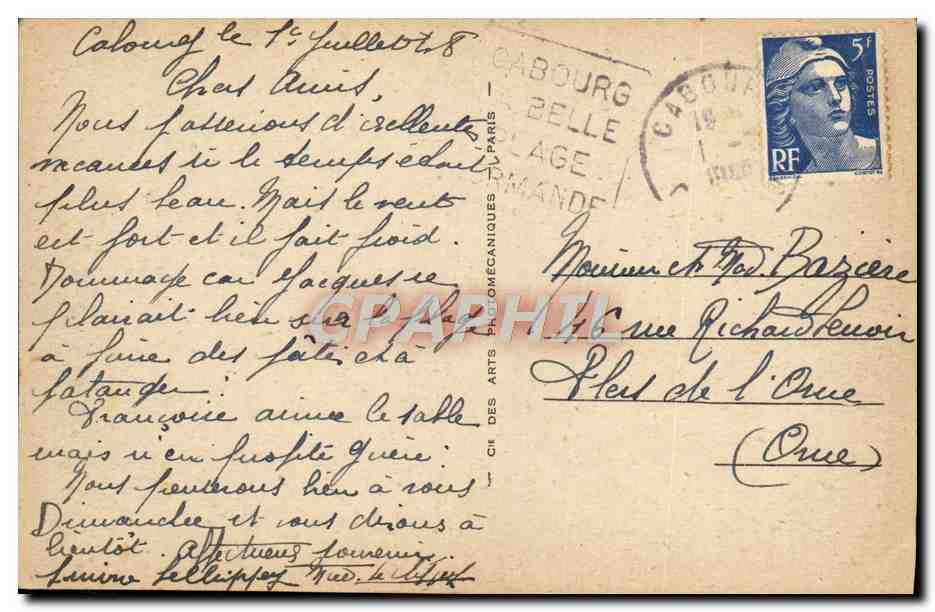 Cabourg le 1er Juillet 48
Chers Amis,
Nous passerions d'excellentes
vacances si le temps était
plus beau. Mais le vent
est fort et il fait froid.
Dommage car Jacques se
plairait bien sur la plage
à faire des pâtés et à
patauger.
Françoise aime le sable
mais n'en profite guère.
Nous penserons bien à vous
Dimanche et vous disons à
bientôt. Affectueux souvenir.
CIE DES ARTS PHOTOMÉCANIQUES PARIS
CABOURG
BELLE
PLAGE
NORMANDE
CABOURG
5F
POSTES
RF
Monsieur et Mad. Bazière
46 rue Richard Lenoir
Flers de l'Orne
(Orne)
CPAPHIL